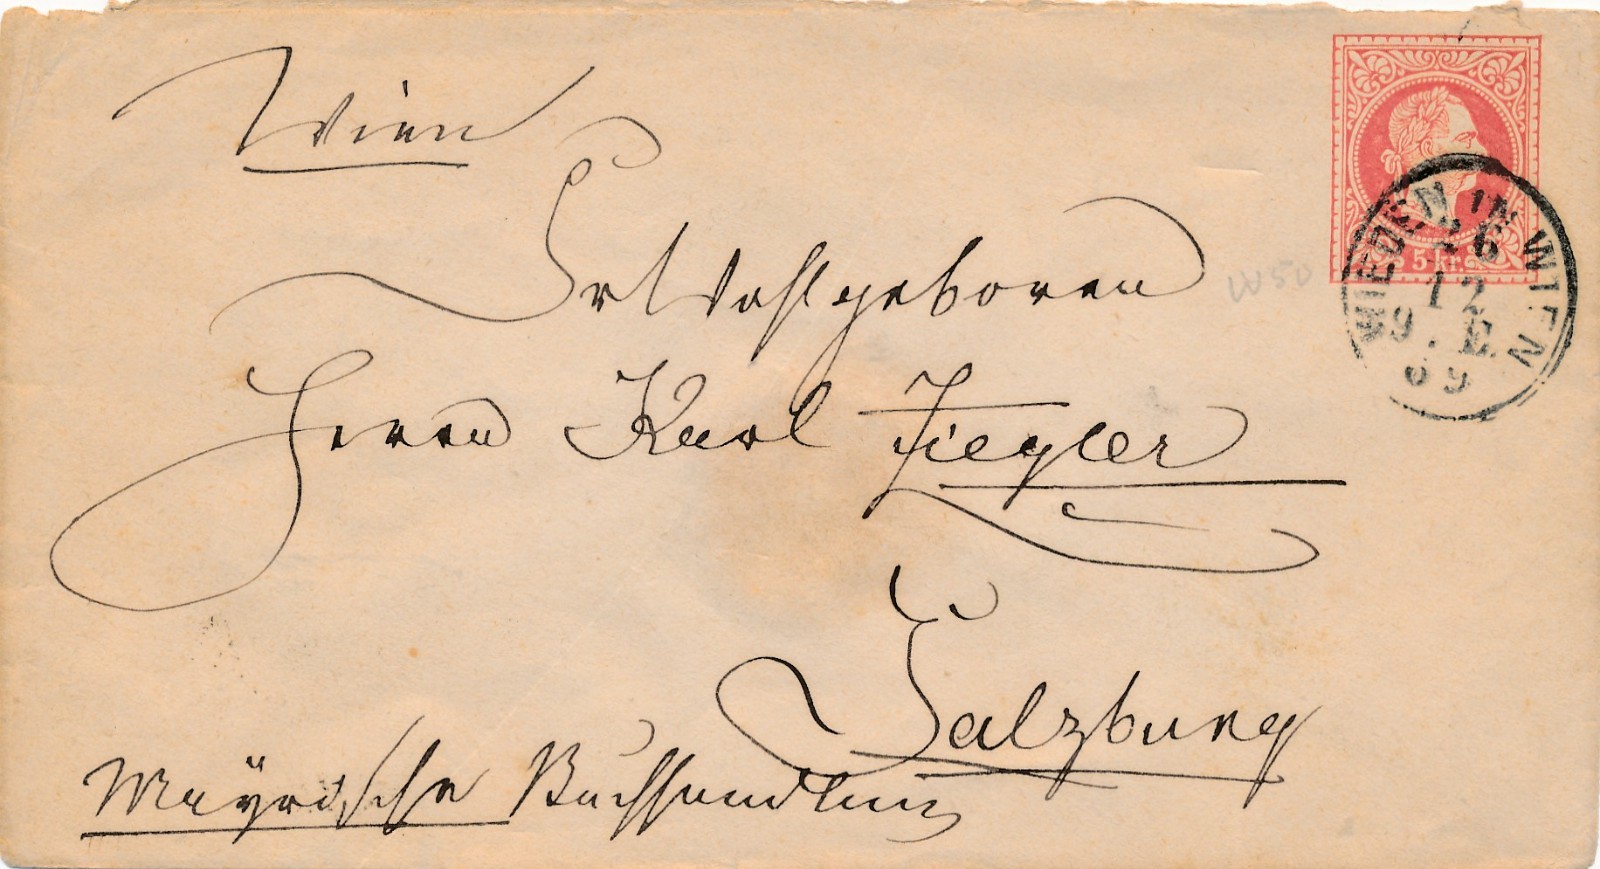 Wien
Sr Wohlgeboren
Herrn Karl Ziegler
Salzburg
Mayrische Buchhandlung
5 kr.
WIEDEN IN WIEN
26
12
9. E.
69
W50